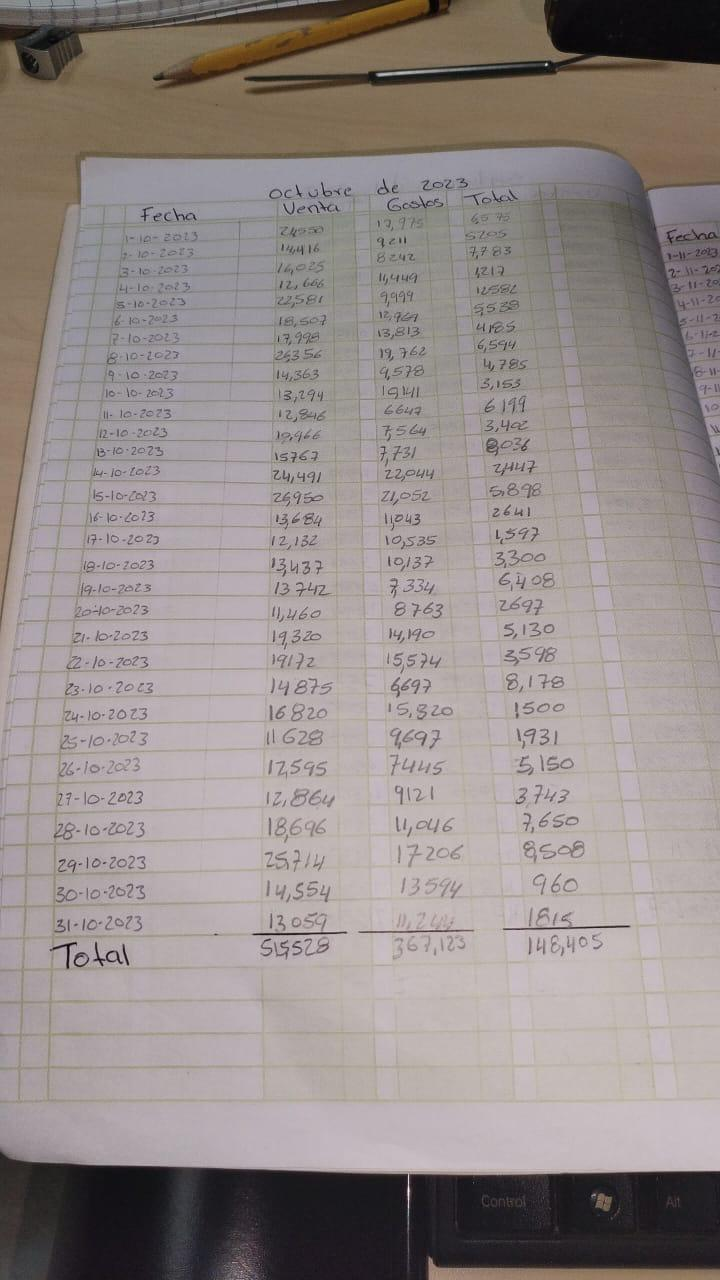 octubre de 2023
Fecha Venta Gastos Total
1-10-2023 24550 17,975 6,575
2-10-2023 14,416 9211 5205
3-10-2023 16,025 8242 7,783
4-10-2023 12,666 11,449 1,217
5-10-2023 22,581 9,999 12582
6-10-2023 18,507 12,969 5,538
7-10-2023 17,998 13,813 4,185
8-10-2023 26,356 19,762 6,594
9-10-2023 14,363 9,578 4,785
10-10-2023 13,294 10,141 3,153
11-10-2023 12,846 6647 6199
12-10-2023 10,966 7,564 3,402
13-10-2023 15767 7,731 8,036
14-10-2023 24,491 22,044 2,447
15-10-2023 26,950 21,052 5,898
16-10-2023 13,684 11,043 2641
17-10-2023 12,132 10,535 1,597
18-10-2023 13,437 10,137 3,300
19-10-2023 13742 7,334 6,408
20-10-2023 11,460 8763 2697
21-10-2023 19,320 14,190 5,130
22-10-2023 19172 15,574 3,598
23-10-2023 14875 6,697 8,178
24-10-2023 16820 15,320 1,500
25-10-2023 11628 9,697 1,931
26-10-2023 12,595 7445 5,150
27-10-2023 12,864 9121 3,743
28-10-2023 18,696 11,046 7,650
29-10-2023 25,714 17206 8,508
30-10-2023 14,554 13594 960
31-10-2023 13059 11,244 1815
Total 515,528 367,123 148,405
Fecha
1-11-2023
Control
Alt